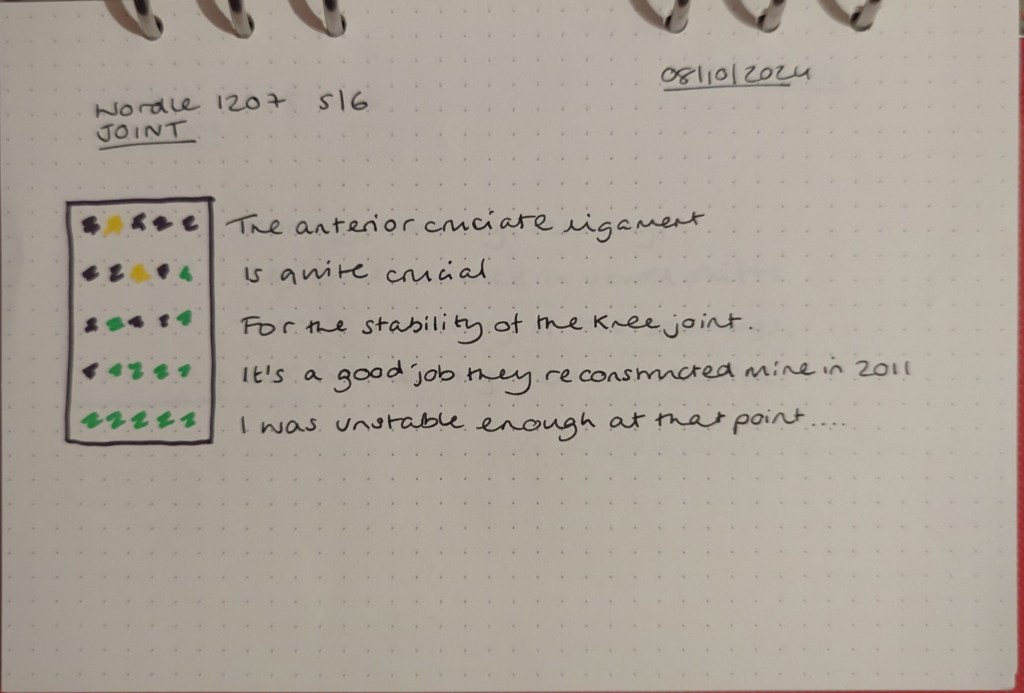 08/10/2024
Wordle 1207 5/6
JOINT
The anterior cruciate ligament
Is quite crucial
For the stability of the knee joint.
It's a good job they reconstructed mine in 2011
I was unstable enough at that point....